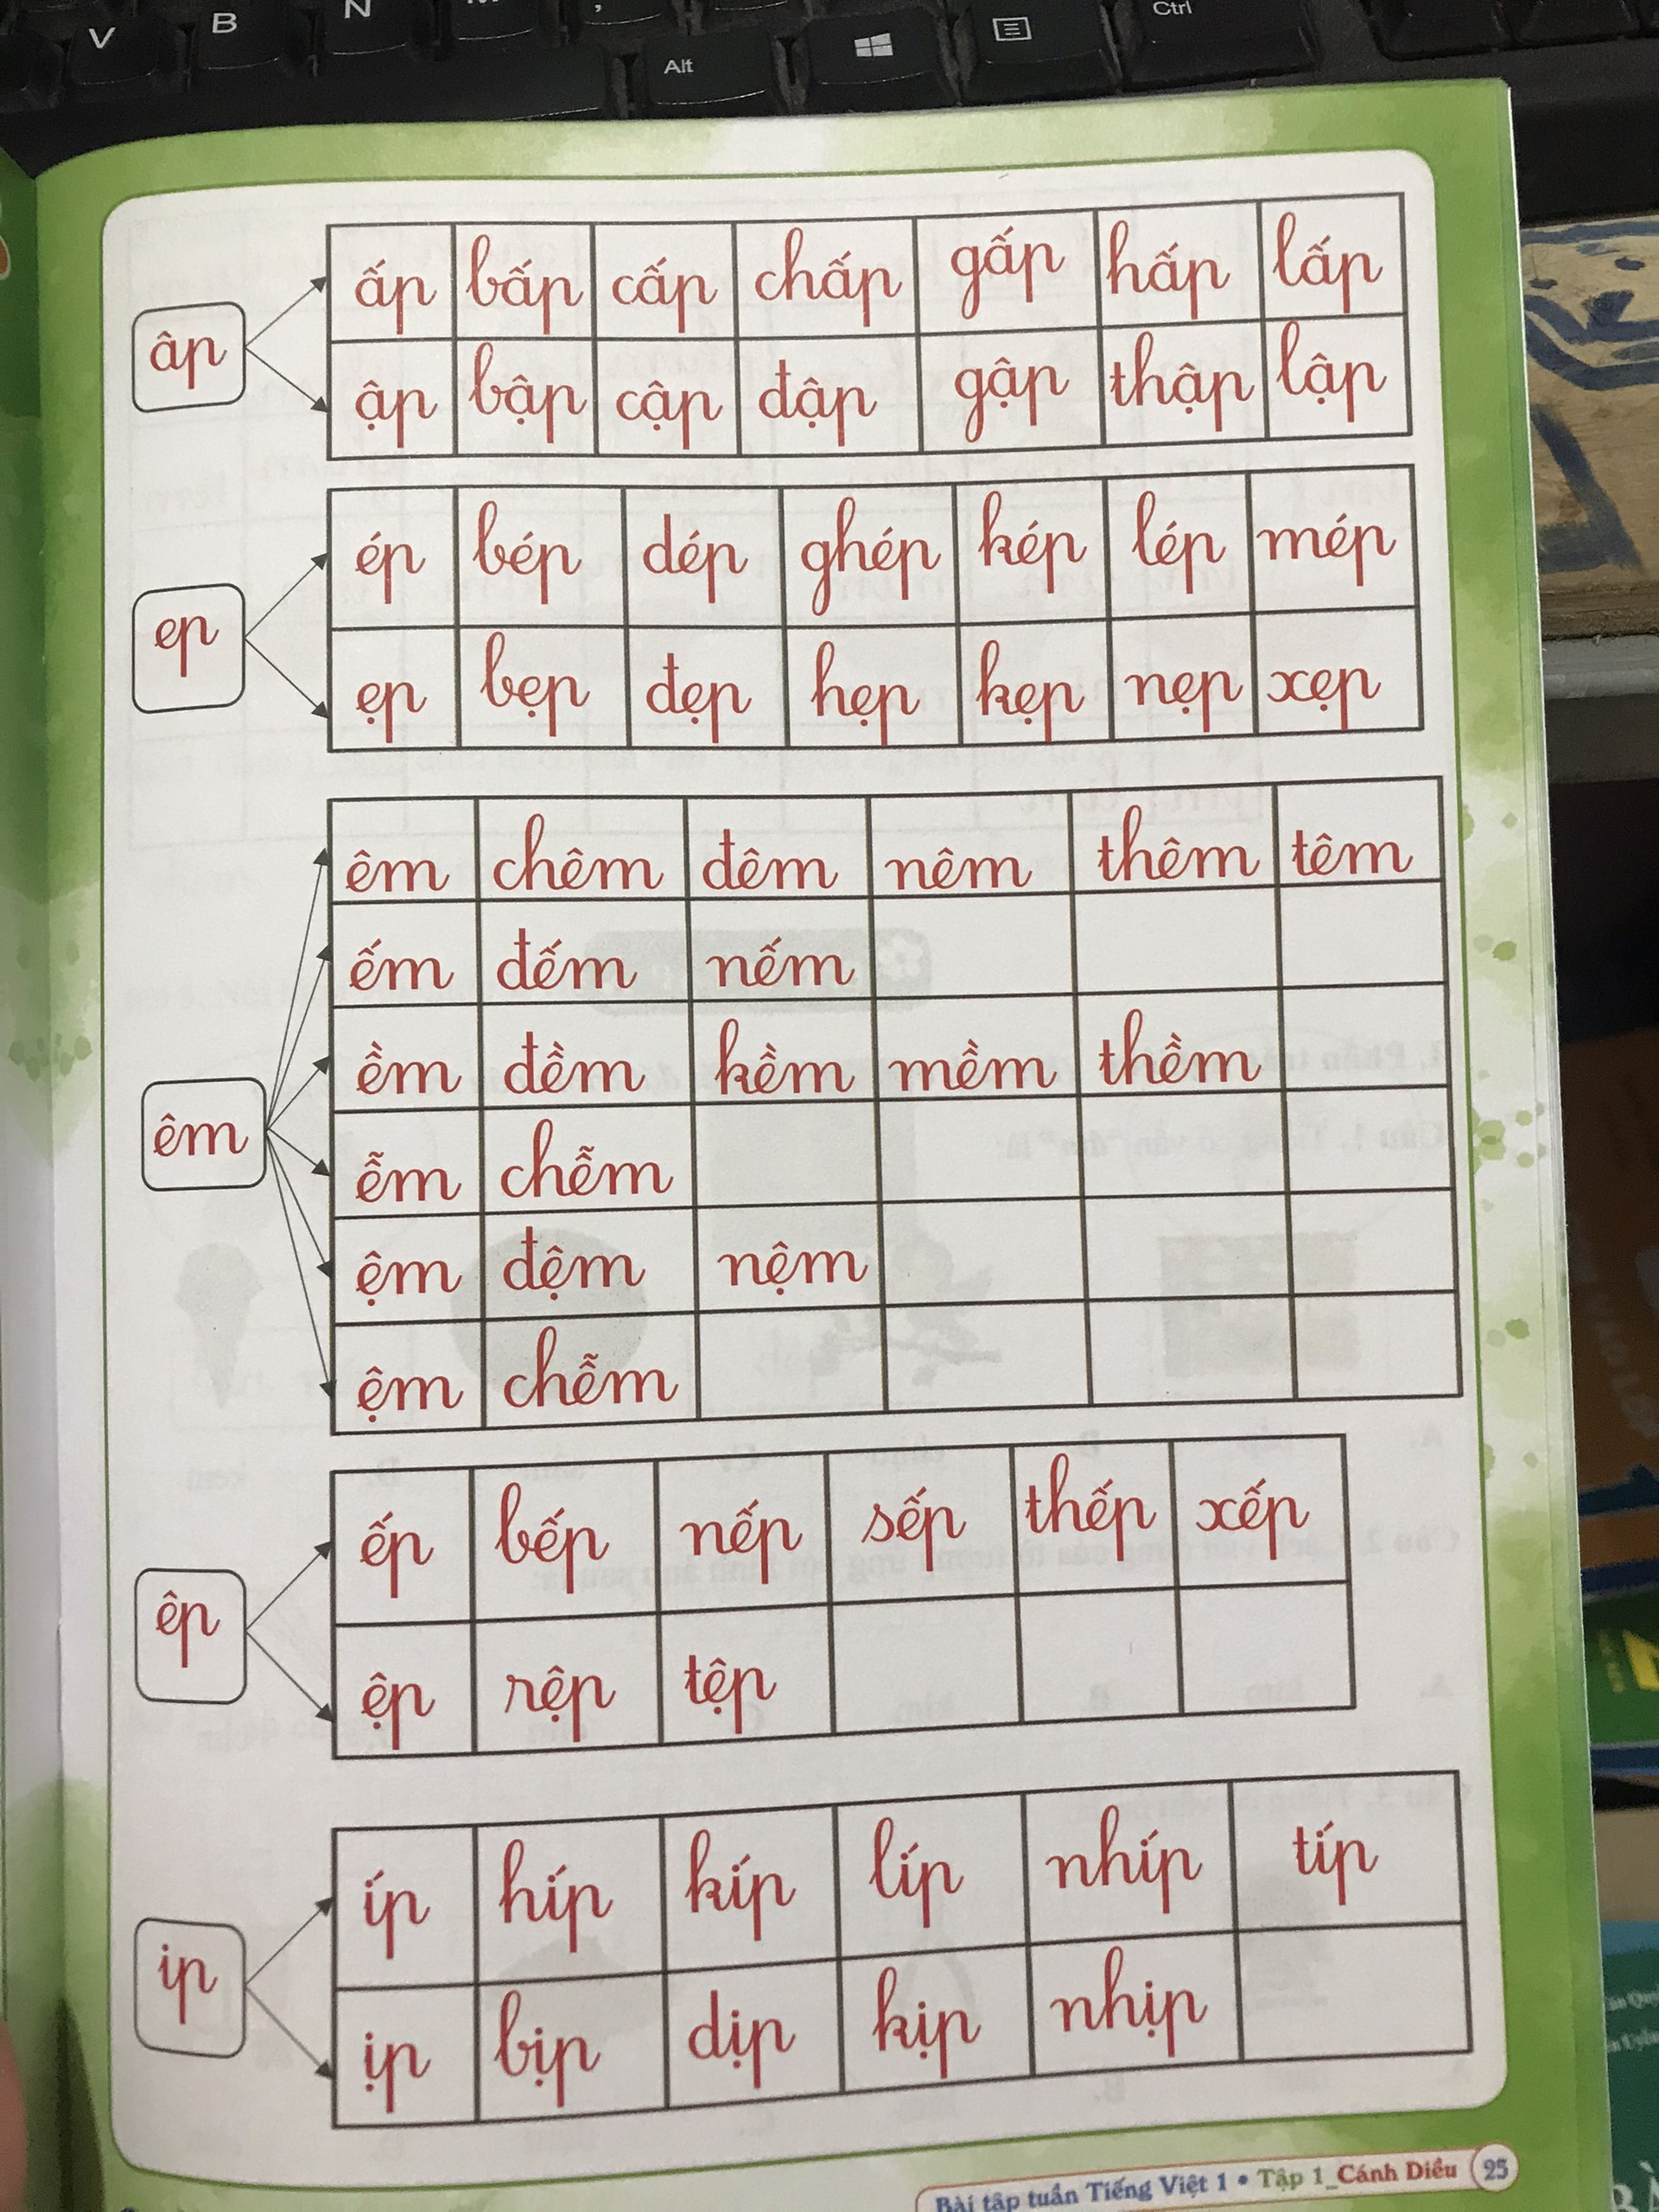 V B N
Alt
Ctrl
âp
ấp bấp cấp chấp gấp hấp lấp
ập bập cập đập gập thập lập
ep
ép bép dép ghép kép lép mép
ẹp bẹp đẹp hẹp kẹp nẹp xẹp
êm
êm chêm đêm nêm thêm têm
ếm đếm nếm
ềm đềm kềm mềm thềm
ễm chễm
ệm đệm nệm
ệm chễm
êp
ếp bếp nếp sếp thếp xếp
ệp rệp tệp
ip
íp híp kíp líp nhíp típ
ịp bịp dịp kịp nhịp
Bài tập tuần Tiếng Việt 1 • Tập 1_Cánh Diều 25